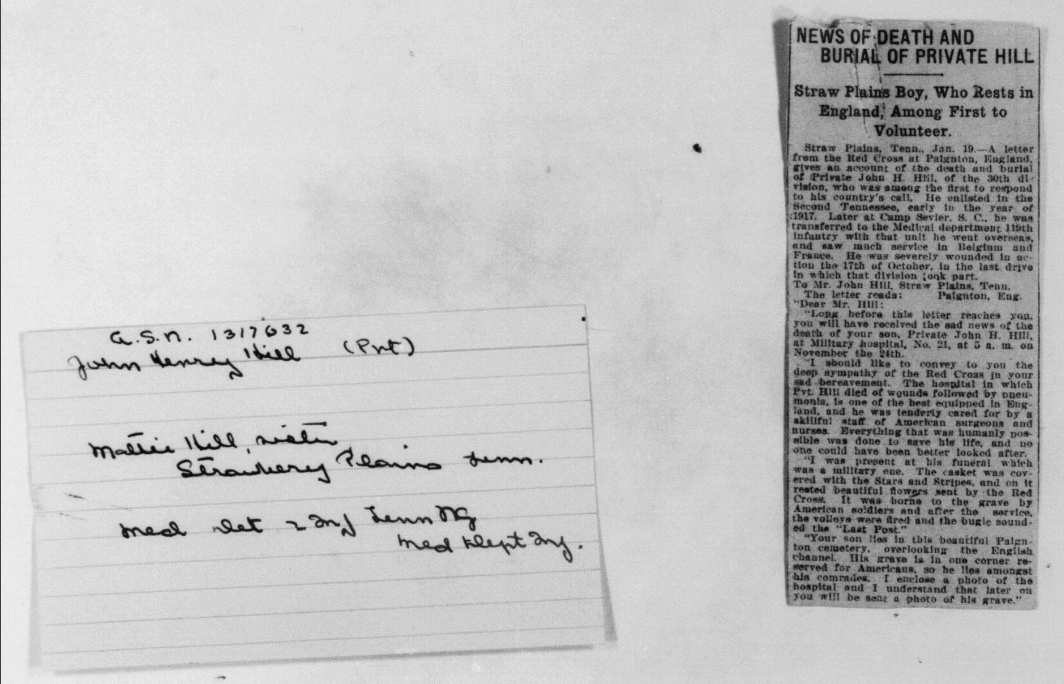 A.S.N. 1317632
John Henry Hill (Pvt)
Mattie Hill, sister
Strawberry Plains Tenn.
Med Det 2 Inf Tenn NG
Med Dept Inf.
NEWS OF DEATH AND
BURIAL OF PRIVATE HILL
Straw Plains Boy, Who Rests in
England, Among First to
Volunteer.
Straw Plains, Tenn., Jan. 19.—A letter
from the Red Cross at Paignton, England,
gives an account of the death and burial
of Private John H. Hill, of the 30th di-
vision, who was among the first to respond
to his country's call. He enlisted in the
Second Tennessee, early in the year of
1917. Later at Camp Sevier, S. C., he was
transferred to the Medical department 119th
infantry with that unit he went overseas,
and saw much service in Belgium and
France. He was severely wounded in ac-
tion the 17th of October, in the last drive
in which that division took part.
To Mr. John Hill, Straw Plains, Tenn.
The letter reads: Paignton, Eng.
"Dear Mr. Hill:
"Long before this letter reaches you,
you will have received the sad news of the
death of your son, Private John H. Hill,
at Military hospital, No. 21, at 5 a. m. on
November the 24th.
"I should like to convey to you the
deep sympathy of the Red Cross in your
sad bereavement. The hospital in which
Pvt. Hill died of wounds followed by pneu-
monia, is one of the best equipped in Eng-
land, and he was tenderly cared for by a
skillful staff of American surgeons and
nurses. Everything that was humanly pos-
sible was done to save his life, and no
one could have been better looked after.
"I was present at his funeral which
was a military one. The casket was cov-
ered with the Stars and Stripes, and on it
rested beautiful flowers sent by the Red
Cross. It was borne to the grave by
American soldiers and after the service,
the volleys were fired and the bugle sound-
ed the "Last Post."
"Your son lies in this beautiful Paign-
ton cemetery, overlooking the English
channel. His grave is in one corner re-
served for Americans, so he lies amongst
his comrades. I enclose a photo of the
hospital and I understand that later on
you will be sent a photo of his grave."